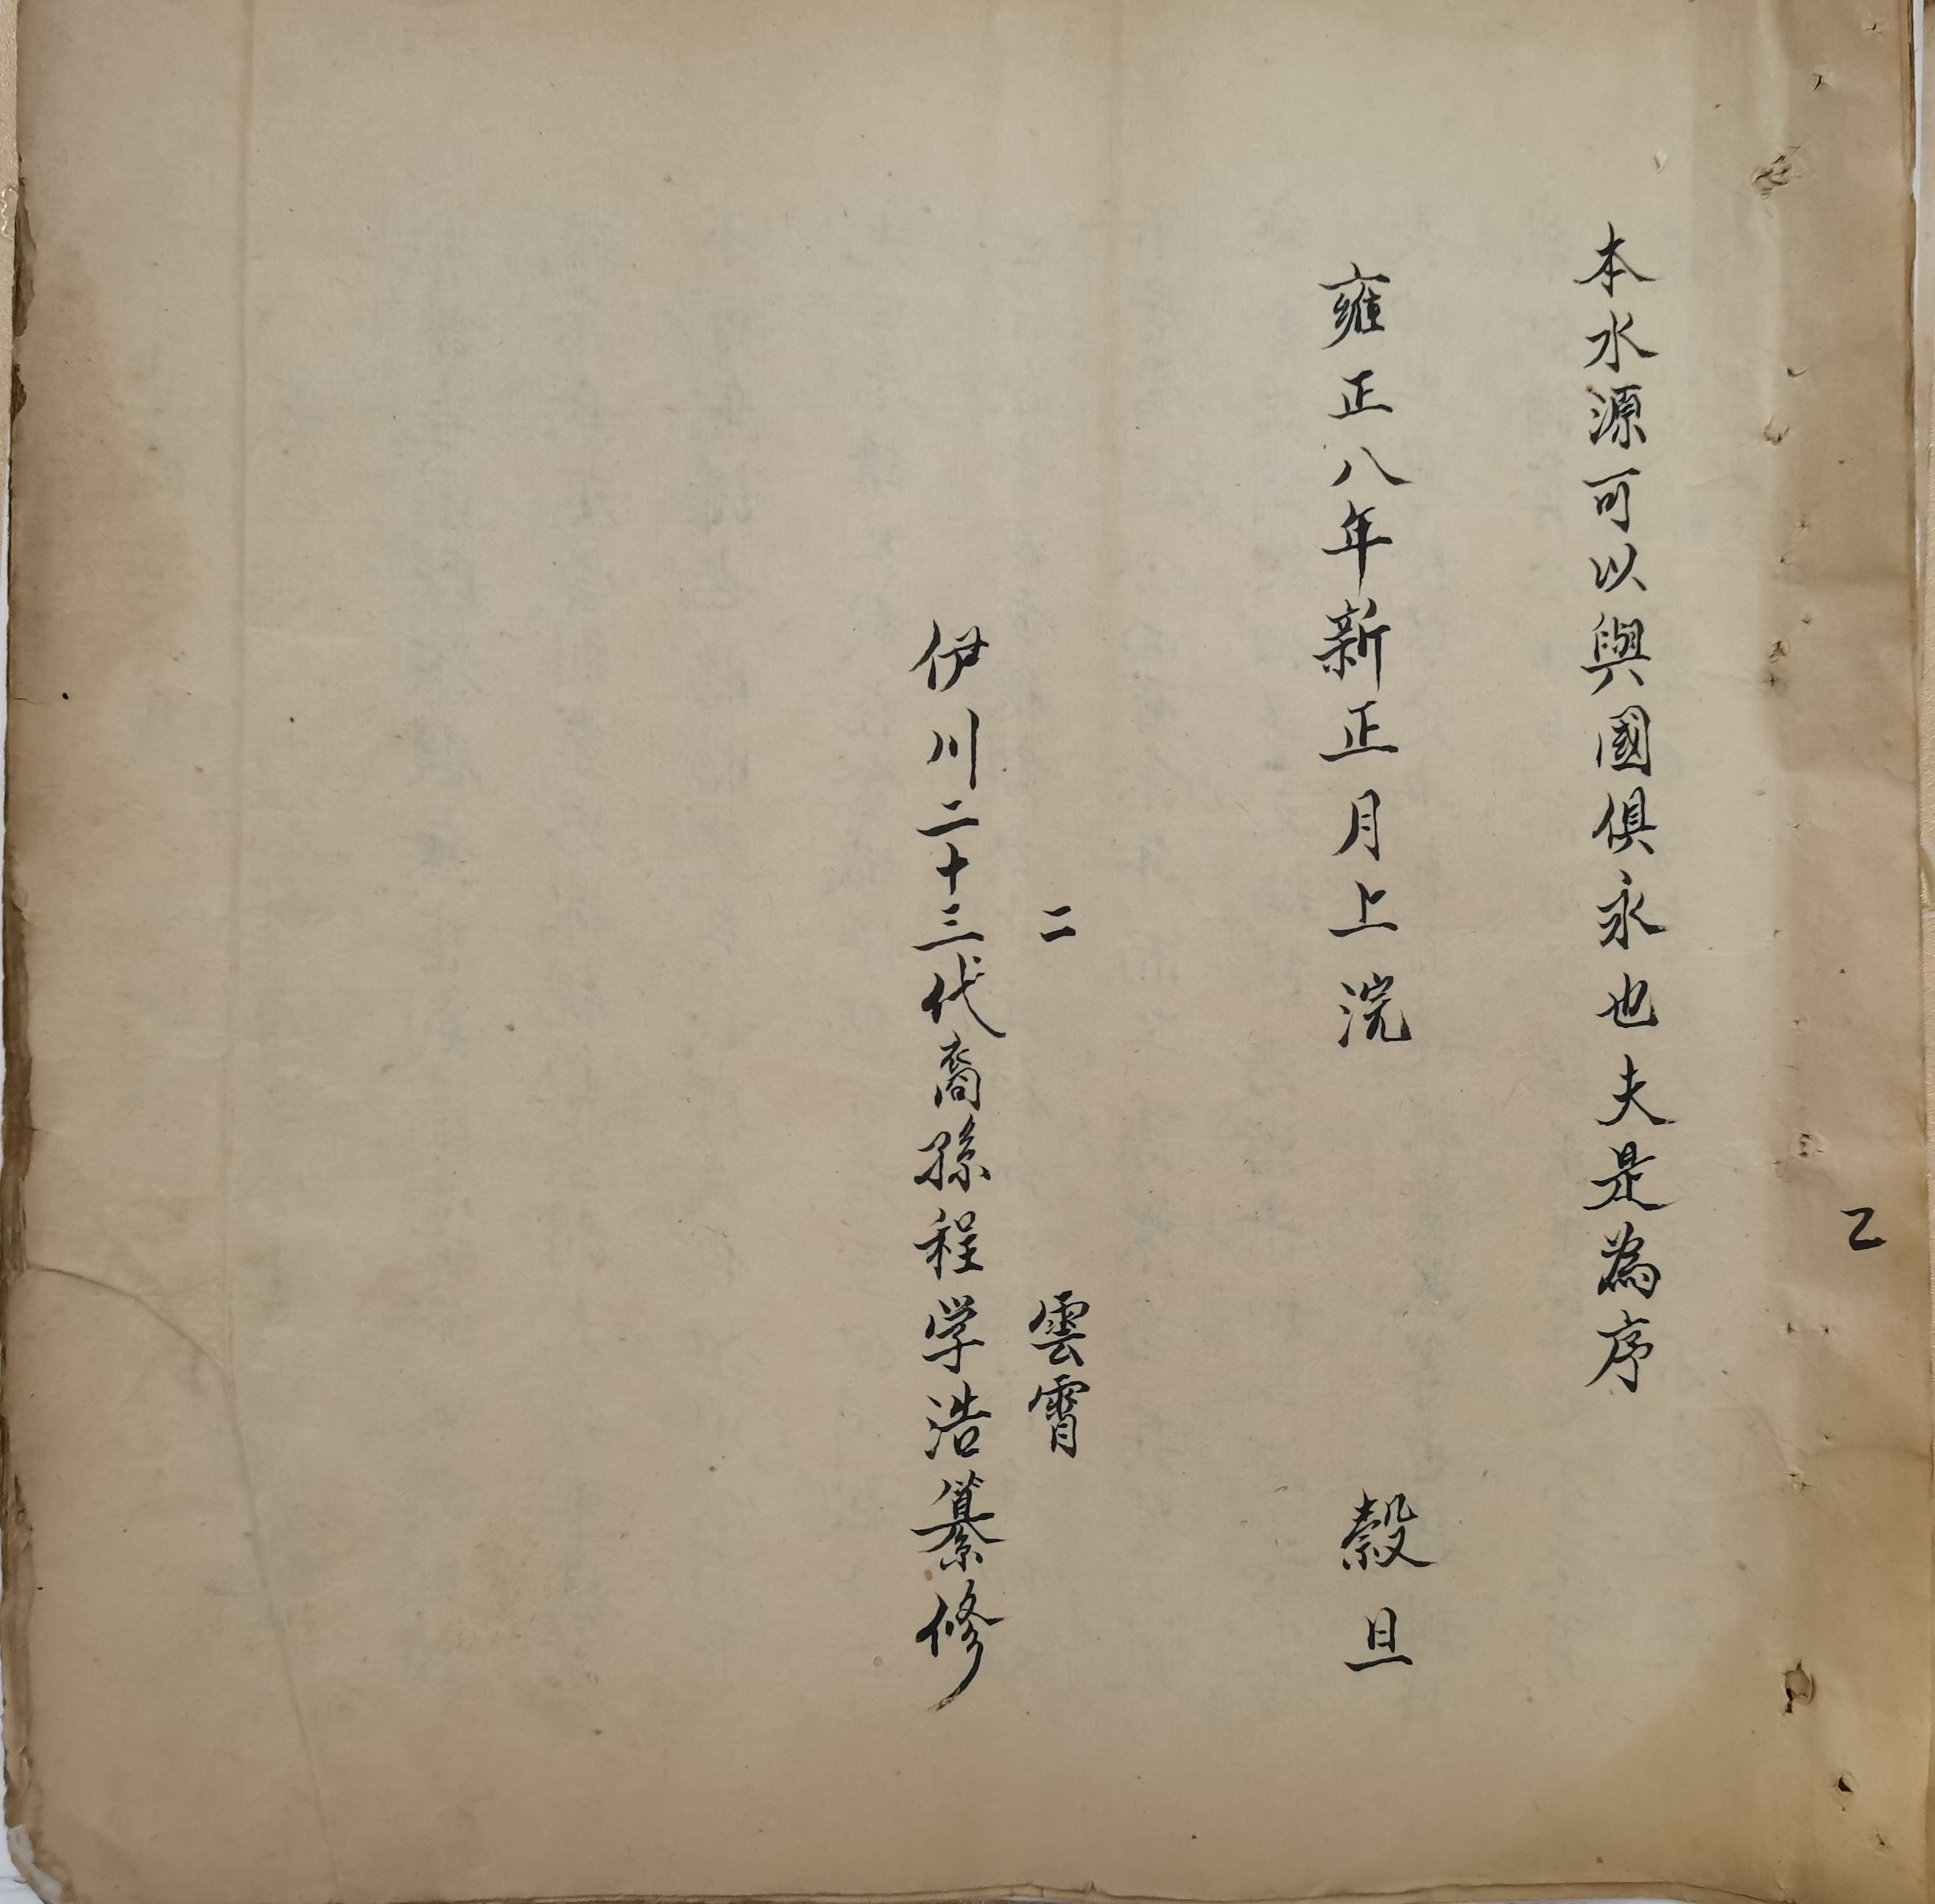 乙
本水源可以與國俱永也夫是為序
雍正八年新正月上浣 穀旦
二 雲霄
伊川二十三代裔孫程学浩纂修